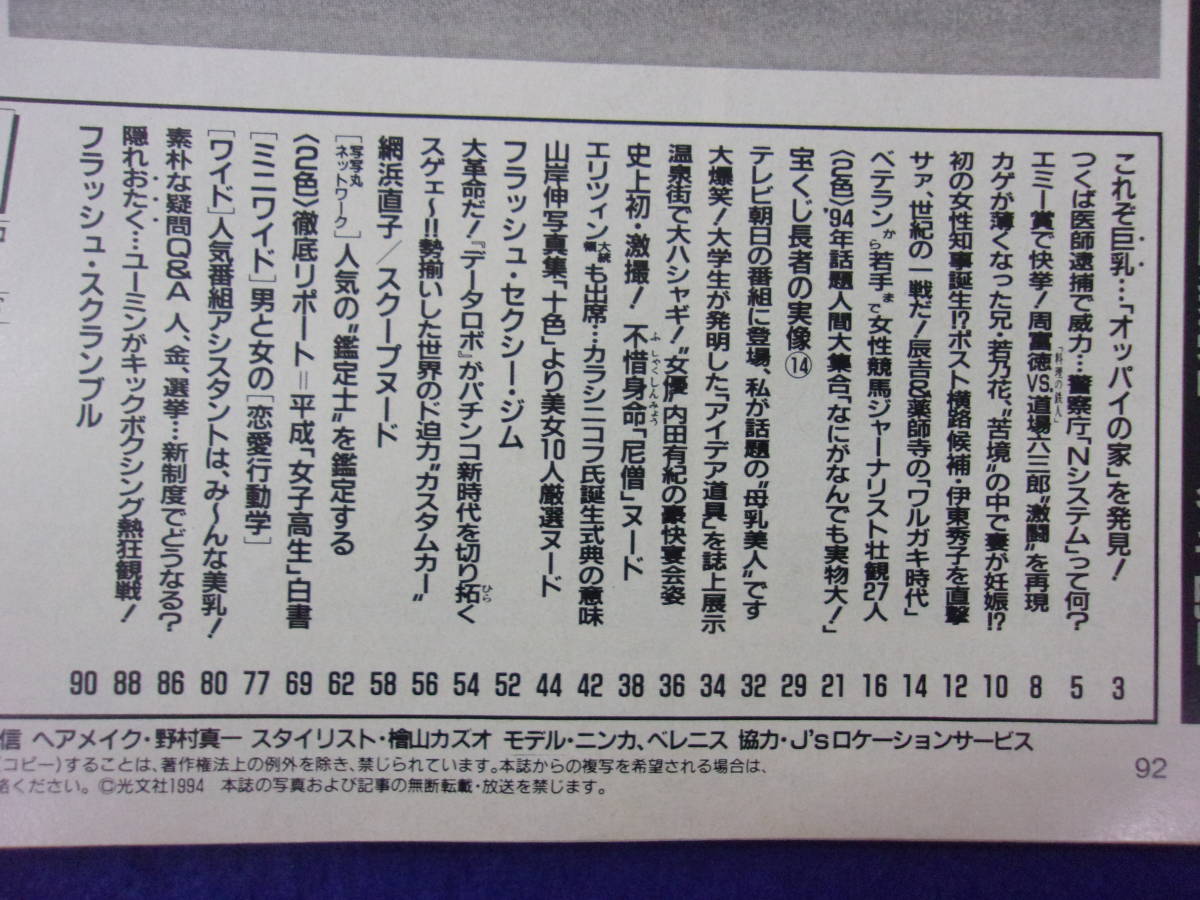 これぞ巨乳…「オッパイの家」を発見! 3
つくば医師逮捕で威力…警察庁「Nシステム」って何? 5
エミー賞で快挙!周富徳VS.「料理の鉄人」道場六三郎“激闘”を再現 8
カゲが薄くなった兄・若乃花、“苦境”の中で妻が妊娠!? 10
初の女性知事誕生!?ポスト横路候補・伊東秀子を直撃 12
サァ、世紀の一戦だ!辰吉&薬師寺の「ワルガキ時代」 14
ベテランから若手まで女性競馬ジャーナリスト壮観27人 16
〈2色〉'94年話題人間大集合「なにがなんでも実物大!」 21
宝くじ長者の実像⑭ 29
テレビ朝日の番組に登場、私が話題の“母乳美人”です 32
大爆笑!大学生が発明した「アイデア道具」を誌上展示 34
温泉街で大ハシャギ!“女優”内田有紀の豪快宴会姿 36
史上初・激撮! 不惜身命「尼僧」ヌード 38
ふしゃくしんみょう
エリツィン大統領も出席…カラシニコフ氏誕生式典の意味 42
山岸伸写真集「十色」より美女10人厳選ヌード 44
フラッシュ・セクシー・ジム 52
大革命だ!『データロボ』がパチンコ新時代を切り拓く 54
ひら
スゲェ〜!!勢揃いした世界のド迫力“カスタムカー” 56
網浜直子/スクープヌード 58
[写写丸ネットワーク]人気の“鑑定士”を鑑定する 62
〈2色〉徹底リポート=平成「女子高生」白書 69
[ミニワイド]男と女の[恋愛行動学] 77
[ワイド]人気番組アシスタントは、み〜んな美乳! 80
素朴な疑問Q&A 人、金、選挙…新制度でどうなる? 86
隠れおたく…ユーミンがキックボクシング熱狂観戦! 88
フラッシュ・スクランブル 90
信 ヘアメイク・野村真一 スタイリスト・檜山カズオ モデル・ニンカ、ベレニス 協力・J'sロケーションサービス
(コピー)することは、著作権法上の例外を除き、禁じられています。本誌からの複写を希望される場合は、
絡ください。©光文社1994 本誌の写真および記事の無断転載・放送を禁じます。
92